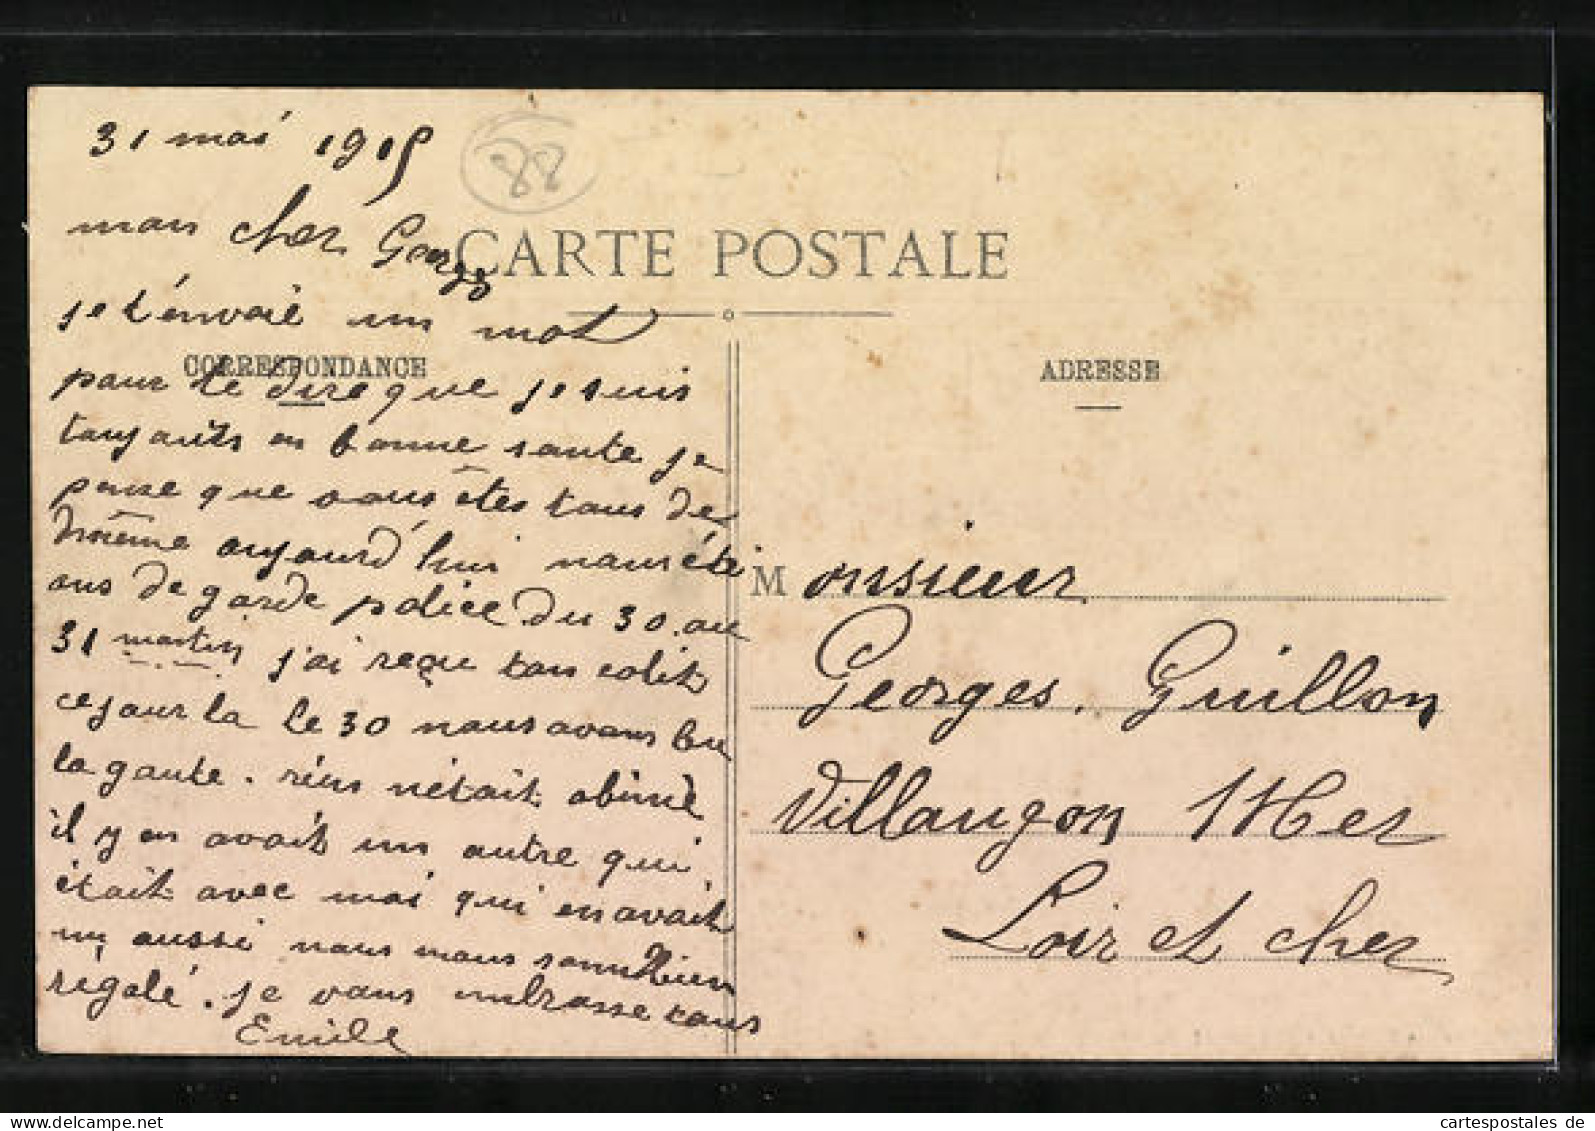 31 mai 1915
88
mon cher Georges
CARTE POSTALE
je t'envoie un mot
CORRESPONDANCE
ADRESSE
pour te dire que je suis
toujours en bonne sante je
pense que vous êtes tous de
même aujourd'hui nous été
ons de garde police du 30 au
31 martin j'ai reçu ton colit
ce jour la le 30 nous avons bu
la goute. riens n'était abimé
il y en avait un autre qui
était avec moi qui en avait
un aussi nous nous somm bien
régalé. je vous embrasse tous
Emile
Monsieur
Georges. Guillon
Villaugon Mer
Loir et cher
cartespostales de